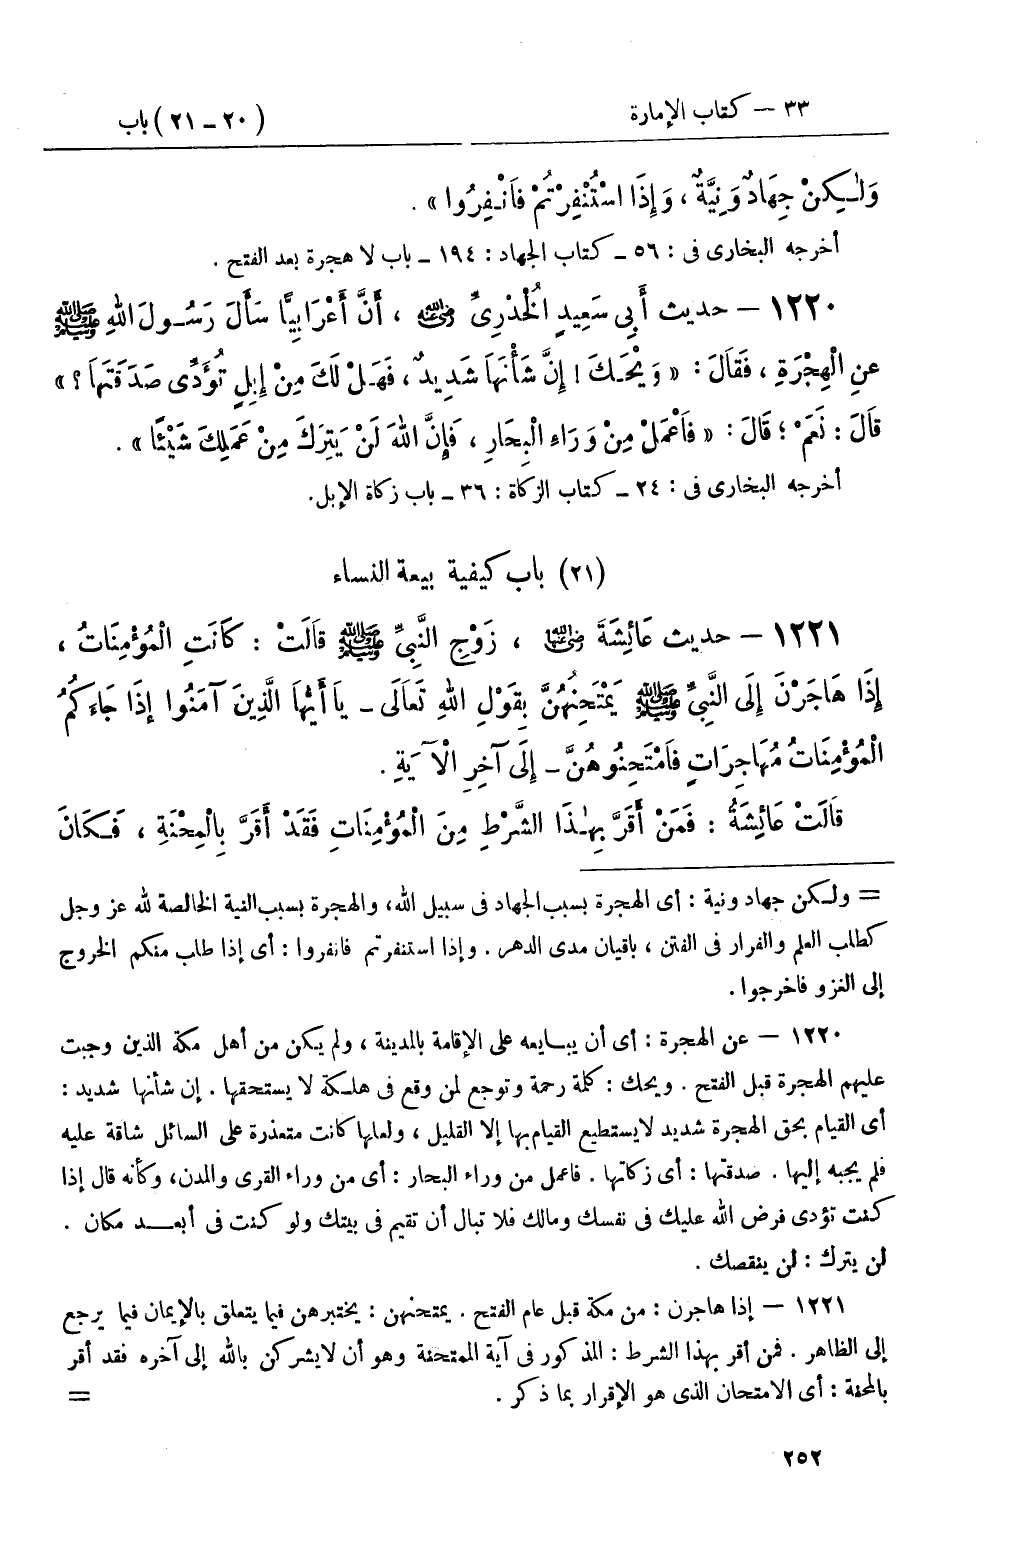 ٣٣ – كتاب الإمارة
(٢٠ – ٢١) باب
وَلٰكِنْ جِهَادٌ وَنِيَّةٌ ، وَإِذَا اسْتُنْفِرْتُمْ فَانْفِرُوا » .
أخرجه البخارى فى : ٥٦ – كتاب الجهاد : ١٩٤ – باب لا هجرة بعد الفتح .
١٢٢٠ – حديث أَبِى سَعِيدٍ الْخُدْرِىِّ رضي الله عنه ، أَنَّ أَعْرَابِيًّا سَأَلَ رَسُولَ اللهِ ﷺ
عَنِ الْهِجْرَةِ ، فَقَالَ : « وَيْحَكَ ! إِنَّ شَأْنَهَا شَدِيدٌ ، فَهَلْ لَكَ مِنْ إِبِلٍ تُؤَدِّى صَدَقَتَهَا ؟ »
قَالَ : نَعَمْ ؛ قَالَ : « فَاعْمَلْ مِنْ وَرَاءِ الْبِحَارِ ، فَإِنَّ اللهَ لَنْ يَتِرَكَ مِنْ عَمَلِكَ شَيْئًا » .
أخرجه البخارى فى : ٢٤ – كتاب الزكاة : ٣٦ – باب زكاة الإبل.
(٢١) باب كيفية بيعة النساء
١٢٢١ – حديث عَائِشَةَ رضي الله عنها ، زَوْجِ النَّبِىِّ ﷺ قَالَتْ : كَانَتِ الْمُؤْمِنَاتُ ،
إِذَا هَاجَرْنَ إِلَى النَّبِىِّ ﷺ يَمْتَحِنُهُنَّ بِقَوْلِ اللهِ تَعَالَى – يَا أَيُّهَا الَّذِينَ آمَنُوا إِذَا جَاءَكُمُ
الْمُؤْمِنَاتُ مُهَاجِرَاتٍ فَامْتَحِنُوهُنَّ – إِلَى آخِرِ الْآيَةِ .
قَالَتْ عَائِشَةُ : فَمَنْ أَقَرَّ بِهٰذَا الشَّرْطِ مِنَ الْمُؤْمِنَاتِ فَقَدْ أَقَرَّ بِالْمِحْنَةِ ، فَكَانَ
= ولكن جهاد ونية : أى الهجرة بسبب الجهاد فى سبيل الله، والهجرة بسبب النية الخالصة لله عز وجل
كطلب العلم والفرار فى الفتن ، باقيان مدى الدهر . وإذا استنفرتم فانفروا : أى إذا طلب منكم الخروج
إلى الغزو فاخرجوا .
١٢٢٠ – عن الهجرة : أى أن يبايعه على الإقامة بالمدينة ، ولم يكن من أهل مكة الذين وجبت
عليهم الهجرة قبل الفتح . ويحك : كلمة رحمة وتوجع لمن وقع فى هلكة لا يستحقها . إن شأنها شديد :
أى القيام بحق الهجرة شديد لا يستطيع القيام بها إلا القليل ، ولعلها كانت متعذرة على السائل شاقة عليه
فلم يجبه إليها . صدقتها : أى زكاتها . فاعمل من وراء البحار : أى من وراء القرى والمدن، وكأنه قال إذا
كنت تؤدى فرض الله عليك فى نفسك ومالك فلا تبال أن تقيم فى بيتك ولو كنت فى أبعد مكان .
لن يترك : لن ينقصك .
١٢٢١ – إذا هاجرن : من مكة قبل عام الفتح . يمتحنهن : يختبرهن فيما يتعلق بالإيمان فيما يرجع
إلى الظاهر . فمن أقر بهذا الشرط : المذكور فى آية الممتحنة وهو أن لا يشركن بالله إلى آخره فقد أقر
بالمحنة : أى الامتحان الذى هو الإقرار بما ذكر . =
٢٥٢